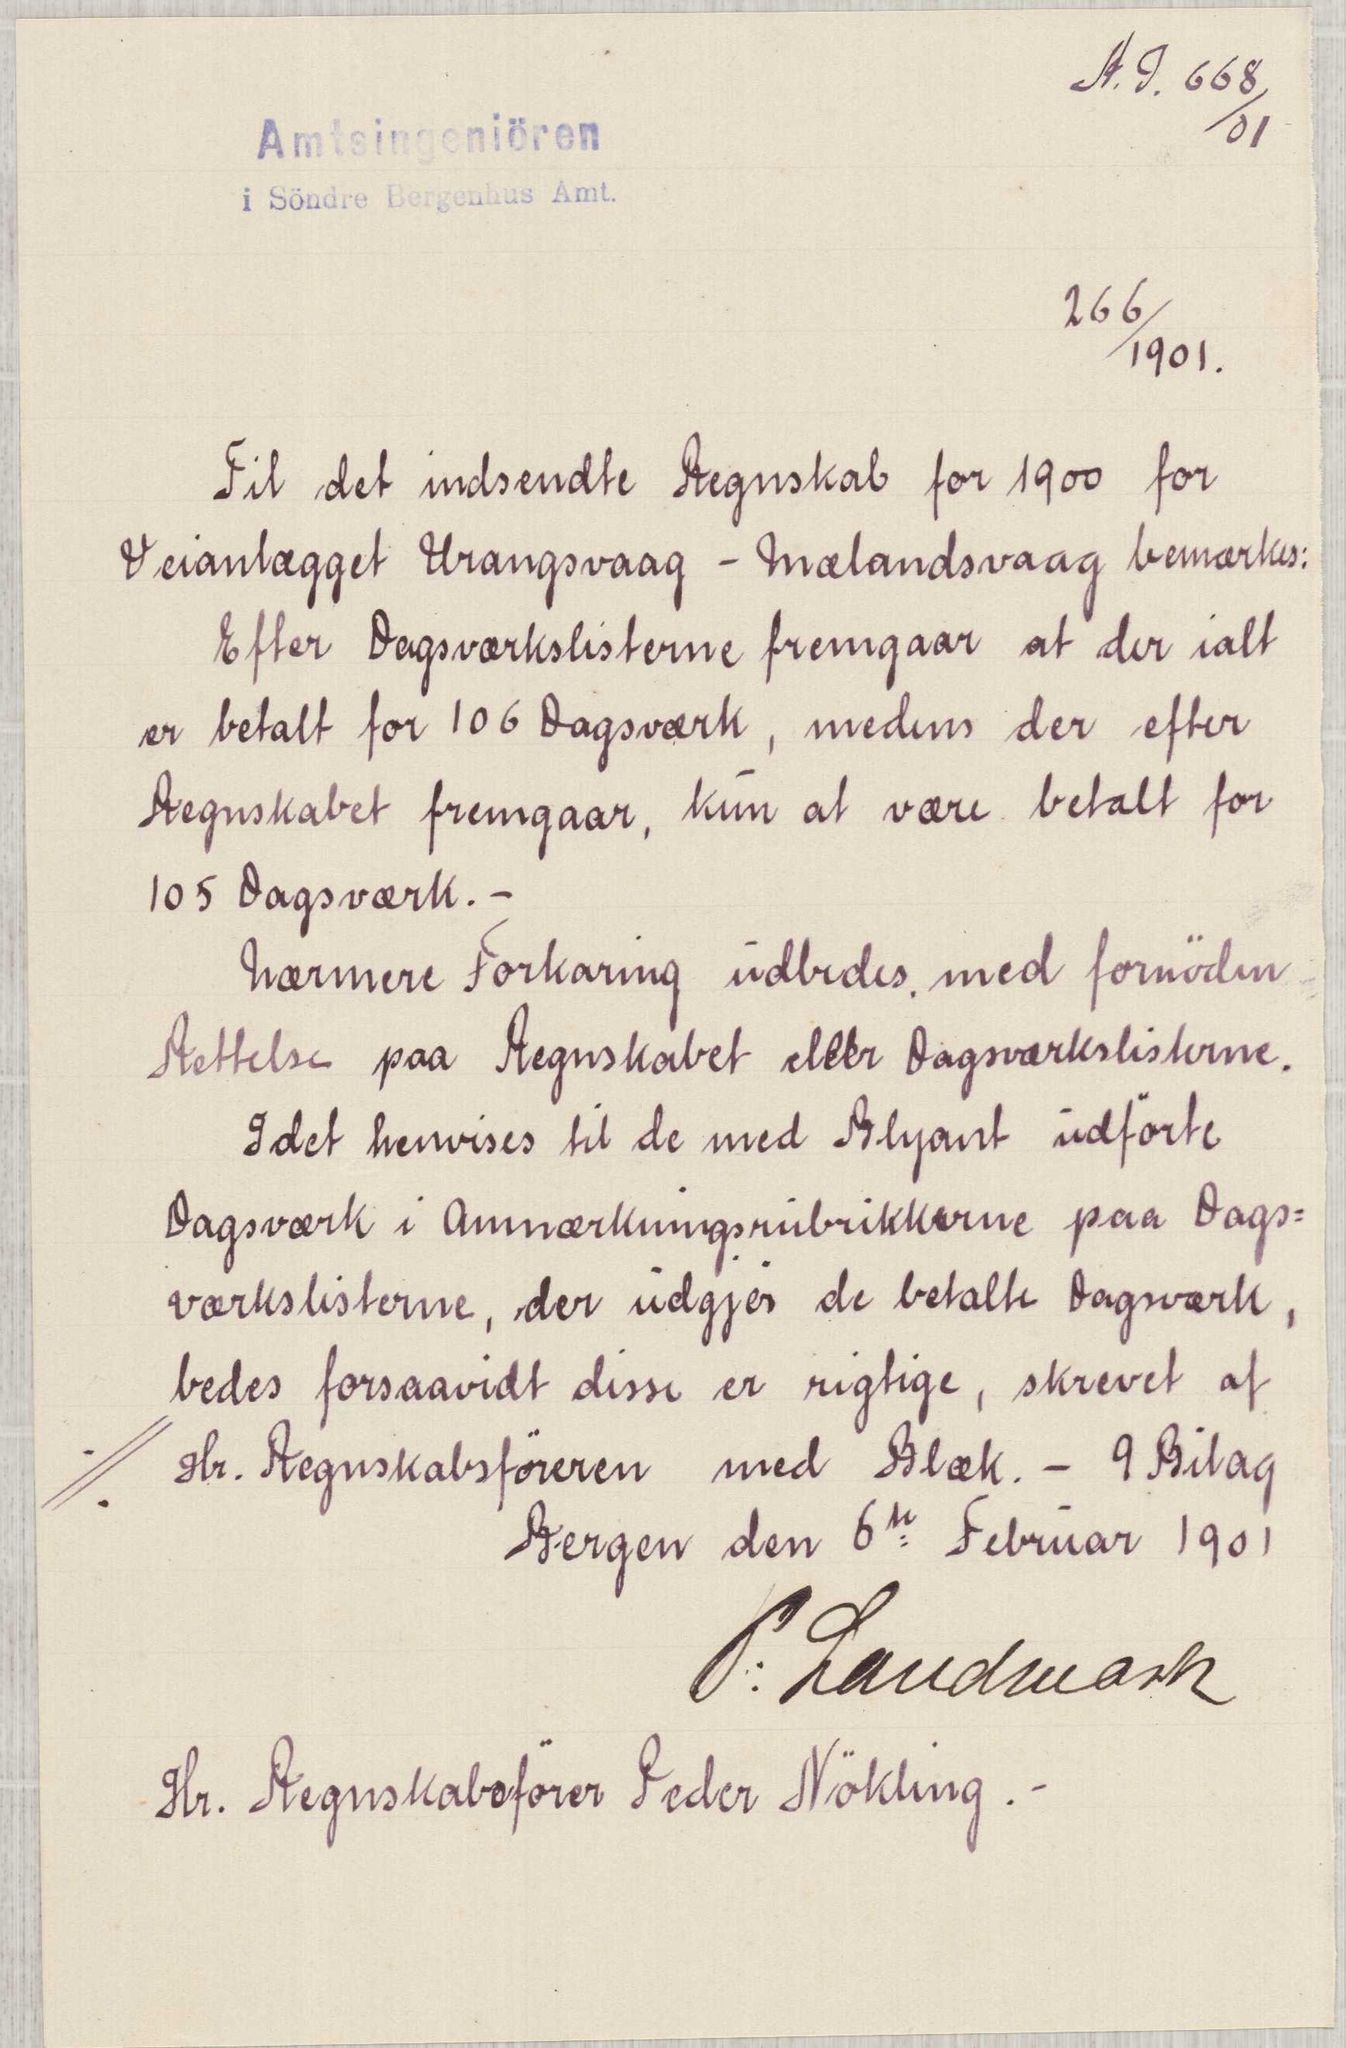 A. I. 668/01
Amtsingeniören
i Söndre Bergenhus Amt.
266/1901.
Til det indsendte Regnskab for 1900 for
Veianlægget Urangsvaag - Mælandsvaag bemærkes:
Efter Dagsværkslisterne fremgaar at der ialt
er betalt for 106 Dagsværk, medens der efter
Regnskabet fremgaar, kun at være betalt for
105 Dagsværk. -
Nærmere Forkaring udbedes, med fornöden
Rettelse paa Regnskabet eller Dagsværkslisterne.
Idet henvises til de med Blyant udförte
Dagsværk i Anmærkningsrubrikkerne paa Dags=
værkslisterne, der udgjör de betalte Dagsværk,
bedes forsaavidt disse er rigtige, skrevet af
Hr. Regnskabsföreren med Blæk. - 9 Bilag
Bergen den 6te Februar 1901
P. Landmark
Hr. Regnskabsförer Peder Nökling. -